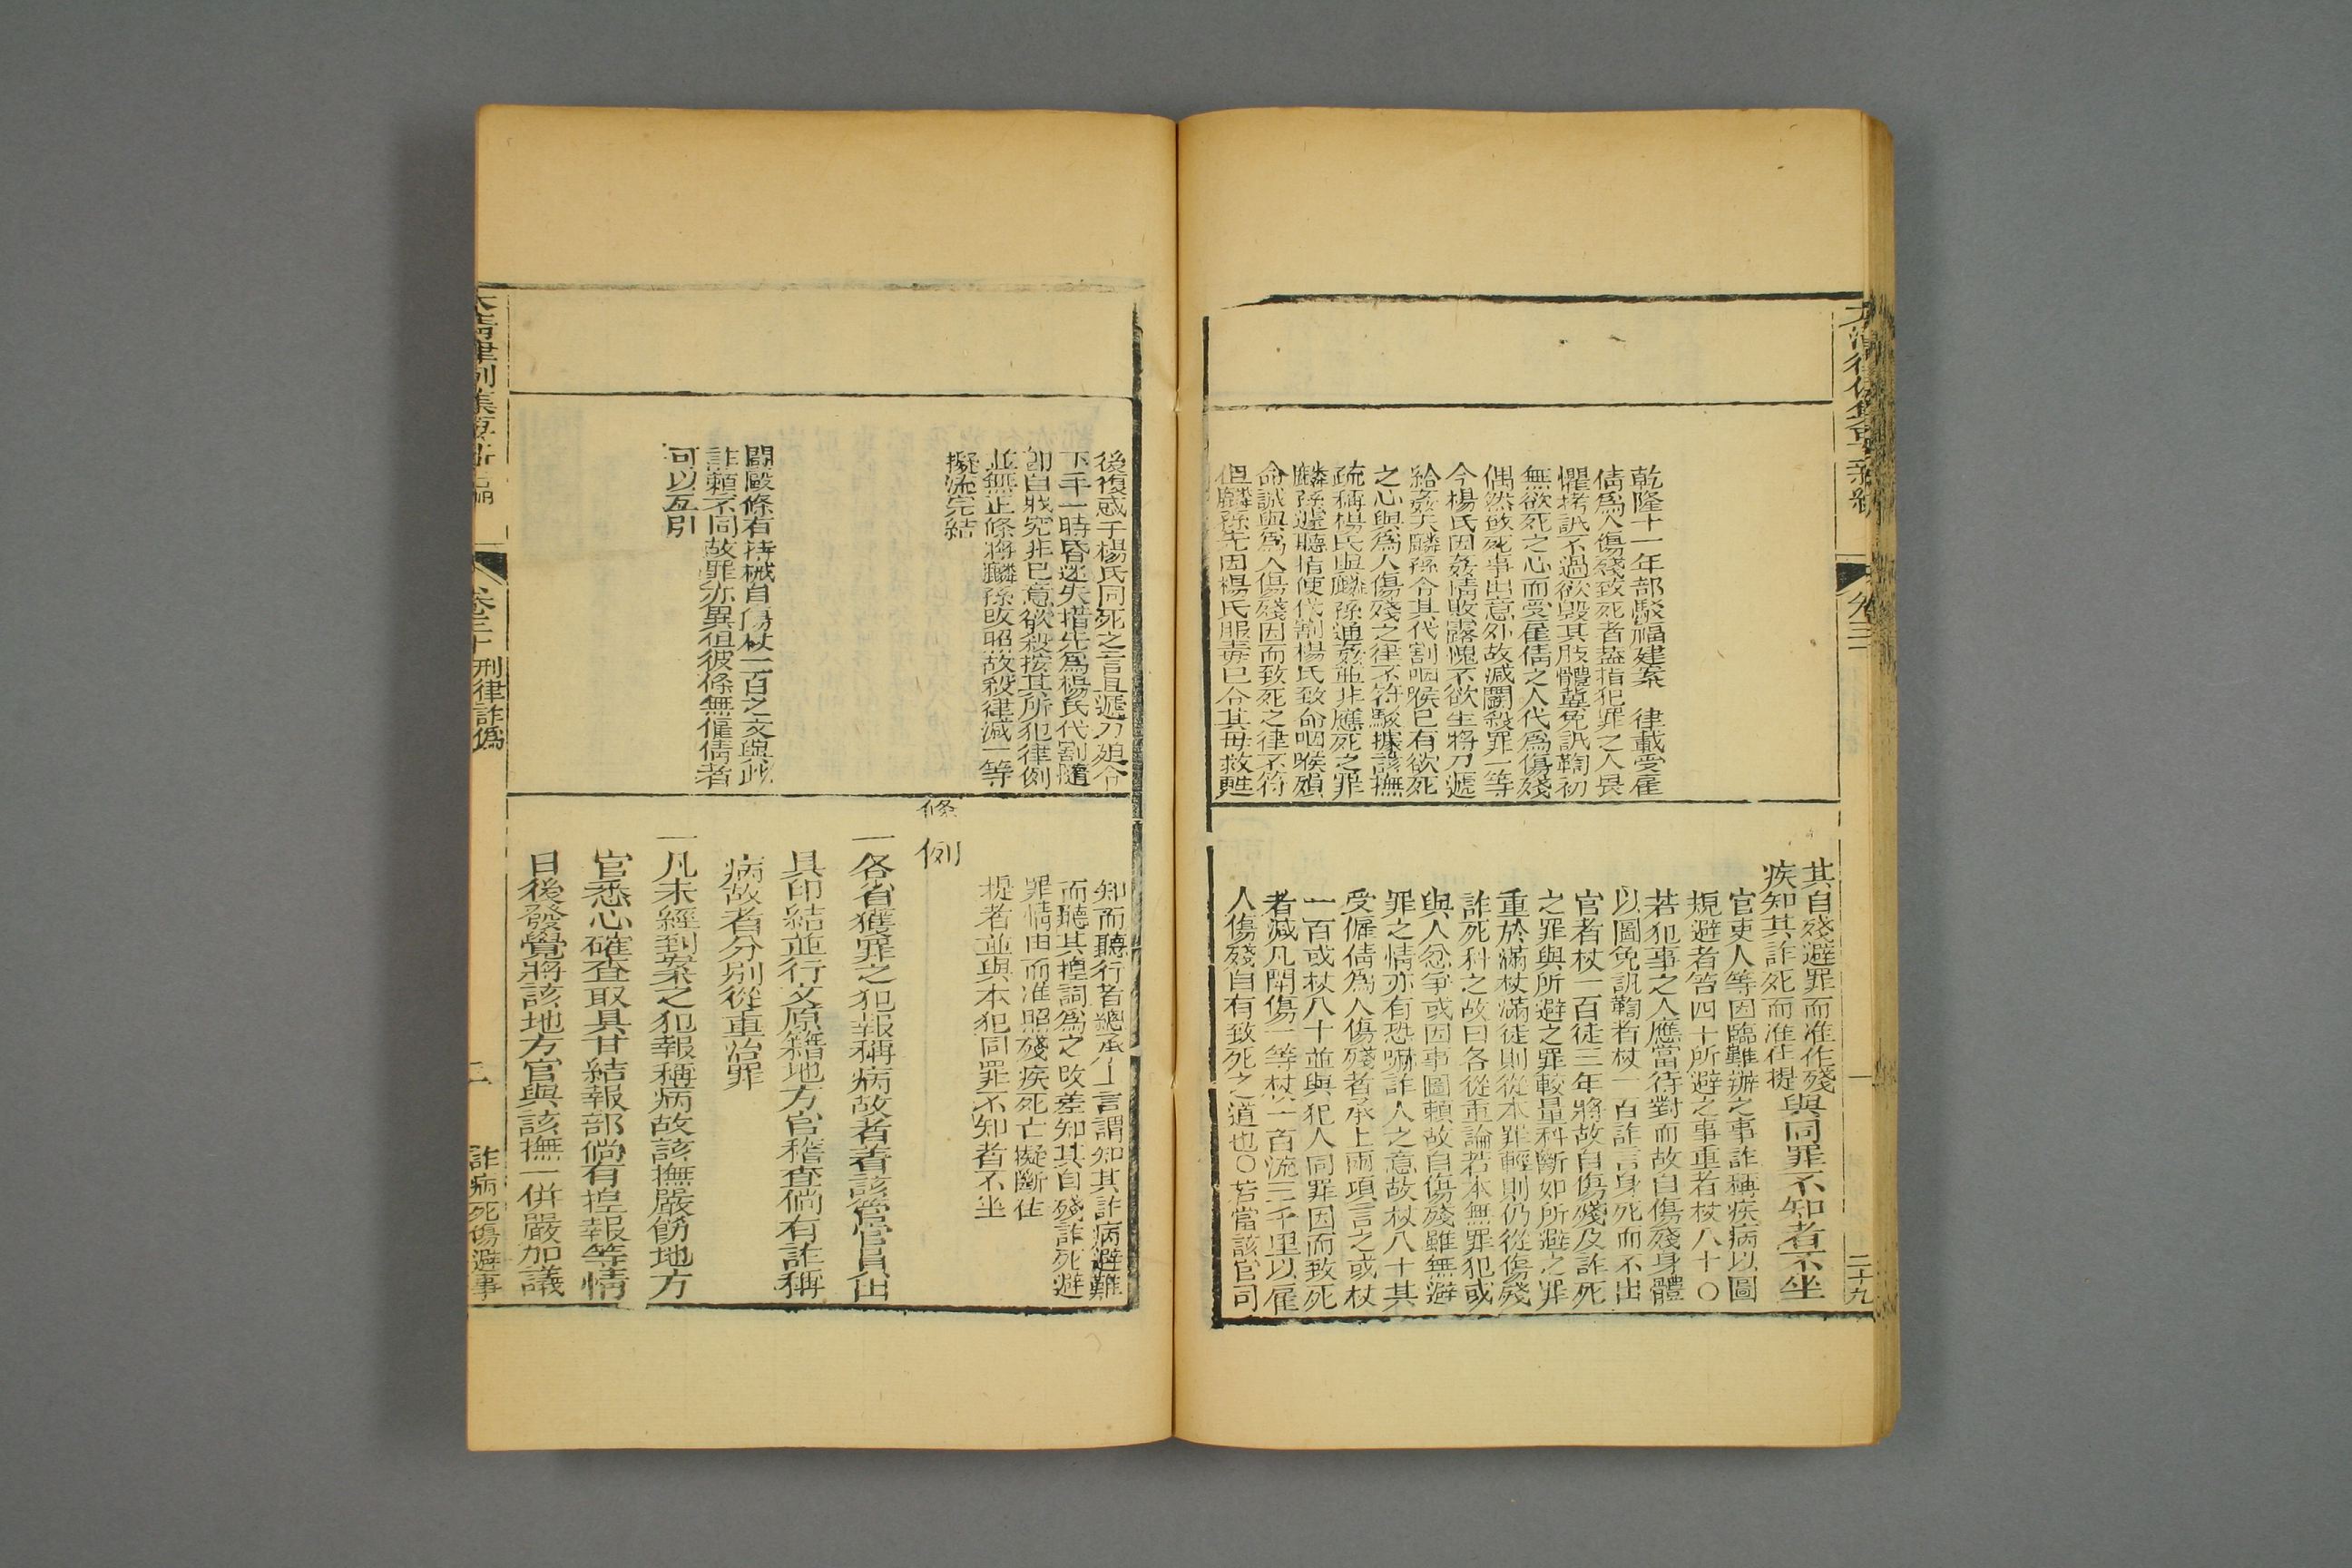 乾隆十一年部駁福建案　律載受雇
倩爲人傷殘致死者葢指犯罪之人畏
懼拷訊不過欲毀其肢體冀免訊鞫初
無欲死之心而受雇倩之人代爲傷殘
偶然致死事出意外故减鬬殺罪一等
今楊氏因姦情敗露愧不欲生將刀遞
給姦夫麟孫令其代割咽喉已有欲死
之心與爲人傷殘之律不符駁據該撫
疏稱楊氏與麟孫通姦並非應死之罪
麟孫遽聽指使代割楊氏致命咽喉殞
命誠與爲人傷殘因而致死之律不符
但麟孫先因楊氏服毒已令其母救甦
其自殘避罪而准作殘
疾知其詐死而准住提與同罪不知者不坐
官吏人等因臨難辦之事詐稱疾病以圖
規避者笞四十所避之事重者杖八十〇
若犯事之人應當待對而故自傷殘身體
以圖免訊鞫者杖一百詐言身死而不出
官者杖一百徒三年將故自傷殘及詐死
之罪與所避之罪較量科斷如所避之罪
重於滿杖滿徒則從本罪輕則仍從傷殘
詐死科之故曰各從重論若本無罪犯或
與人忿爭或因事圖賴故自傷殘雖無避
罪之情亦有恐嚇詐人之意故杖八十其
受僱倩爲人傷殘者承上兩項言之或杖
一百或杖八十並與犯人同罪因而致死
者减凡鬬傷一等杖一百流三千里以雇
人傷殘自有致死之道也〇若當該官司
二十九
後復惑于楊氏同死之言且遞刀廹令
下手一時昏迷失措先爲楊氏代割隨
卽自戕究非已意欲殺按其所犯律例
並無正條將麟孫改照故殺律减一等
擬流完結
鬬毆條有持械自傷杖一百之文與此
詐賴不同故罪亦異但彼條無僱倩者
可以互引
知而聽行者總承上言謂知其詐病避難
而聽其揑詞爲之改差知其自殘詐死避
罪情由而准照殘疾死亡擬斷住
提者並與本犯同罪不知者不坐
條
例
一各省獲罪之犯報稱病故者著該管官員出
具印結並行文原籍地方官稽查倘有詐稱
病故者分別從重治罪
一凡未經到案之犯報稱病故該撫嚴飭地方
官悉心確查取具甘結報部倘有揑報等情
日後發覺將該地方官與該撫一併嚴加議
卷三十　刑律詐僞
二
詐病死傷避事